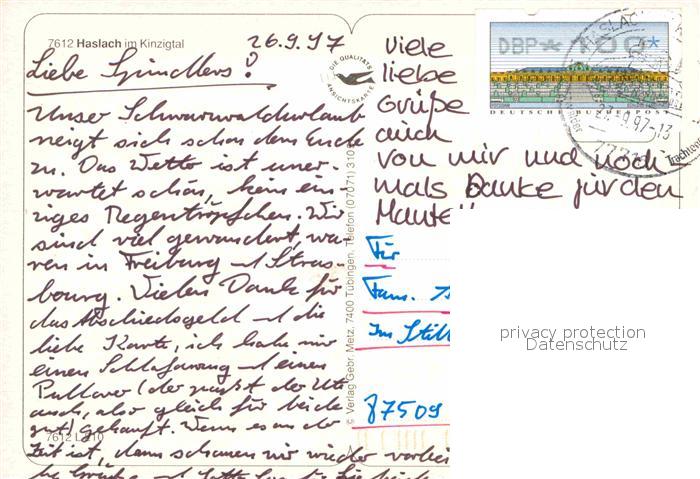 7612 Haslach im Kinzigtal
26.9.97
Liebe Spindlers!
Unser Schwarzwaldurlaub
neigt sich schon dem Ende
zu. Das Wetter ist uner-
wartet schön, kein ein-
ziges Regentröpfchen. Wir
sind viel gewandert, wa-
ren in Freiburg + Stras-
bourg. Vielen Dank für
das Abschiedsgeld + die
liebe Karte, ich habe mir
einen Schlafanzug + einen
Pullover (der paßt der Ute
auch, also gleich für beide
gut) gekauft. Wenn es an der
Zeit ist, dann schauen wir wieder vorbei
7612 L 10
DIE QUALITÄTS
ANSICHTSKARTE
© Verlag Gebr. Metz, 7400 Tübingen, Telefon (07071) 310
Viele
liebe
Grüße
auch
von mir und noch
mals Danke für den
Mantel!
DBP * 100 *
DEUTSCHE BUNDESPOST
HASLACH
9.97-13
777
Trachten
Für
Fam.
Im Still
87509
privacy protection
Datenschutz